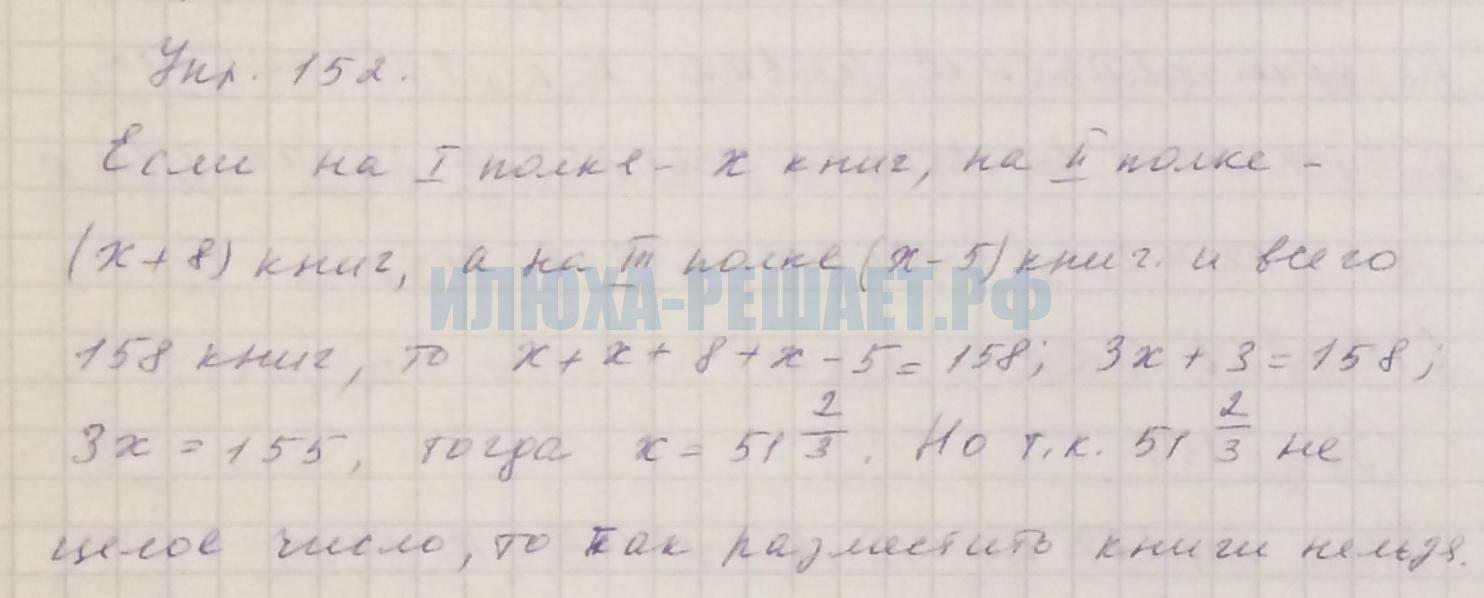 Упр. 152.
Если на I полке - x книг, на II полке -
(x + 8) книг, а на III полке (x - 5) книг. и всего
ИЛЮХА-РЕШАЕТ.РФ
158 книг, то x + x + 8 + x - 5 = 158; 3x + 3 = 158;
3x = 155, тогда x = 51 2/3. Но т.к. 51 2/3 не
целое число, то так разместить книги нельзя.